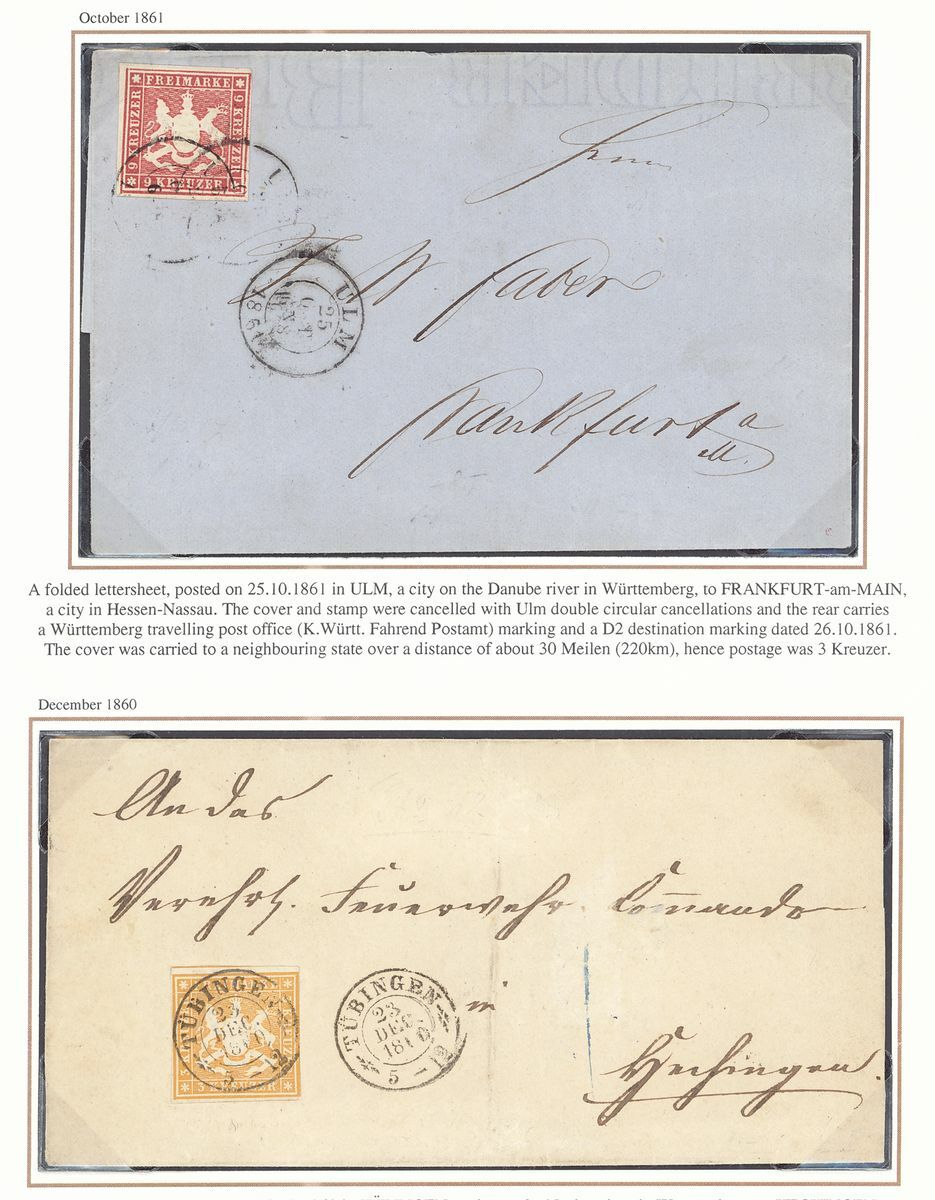 October 1861
FREIMARKE
9 KREUZER
9 KREUZER
9 KREUZER
Herrn
J W Faber
ULM
25
186
Frankfurt a
M.
A folded lettersheet, posted on 25.10.1861 in ULM, a city on the Danube river in Württemberg, to FRANKFURT-am-MAIN,
a city in Hessen-Nassau. The cover and stamp were cancelled with Ulm double circular cancellations and the rear carries
a Württemberg travelling post office (K.Württ. Fahrend Postamt) marking and a D2 destination marking dated 26.10.1861.
The cover was carried to a neighbouring state over a distance of about 30 Meilen (220km), hence postage was 3 Kreuzer.
December 1860
An das
Verehrl. Feuerwehr Commando
in
Hechingen.
TÜBINGEN
23
DEC.
5 - 12
3 KREUZER
TÜBINGEN
23
DEC.
186
5 -